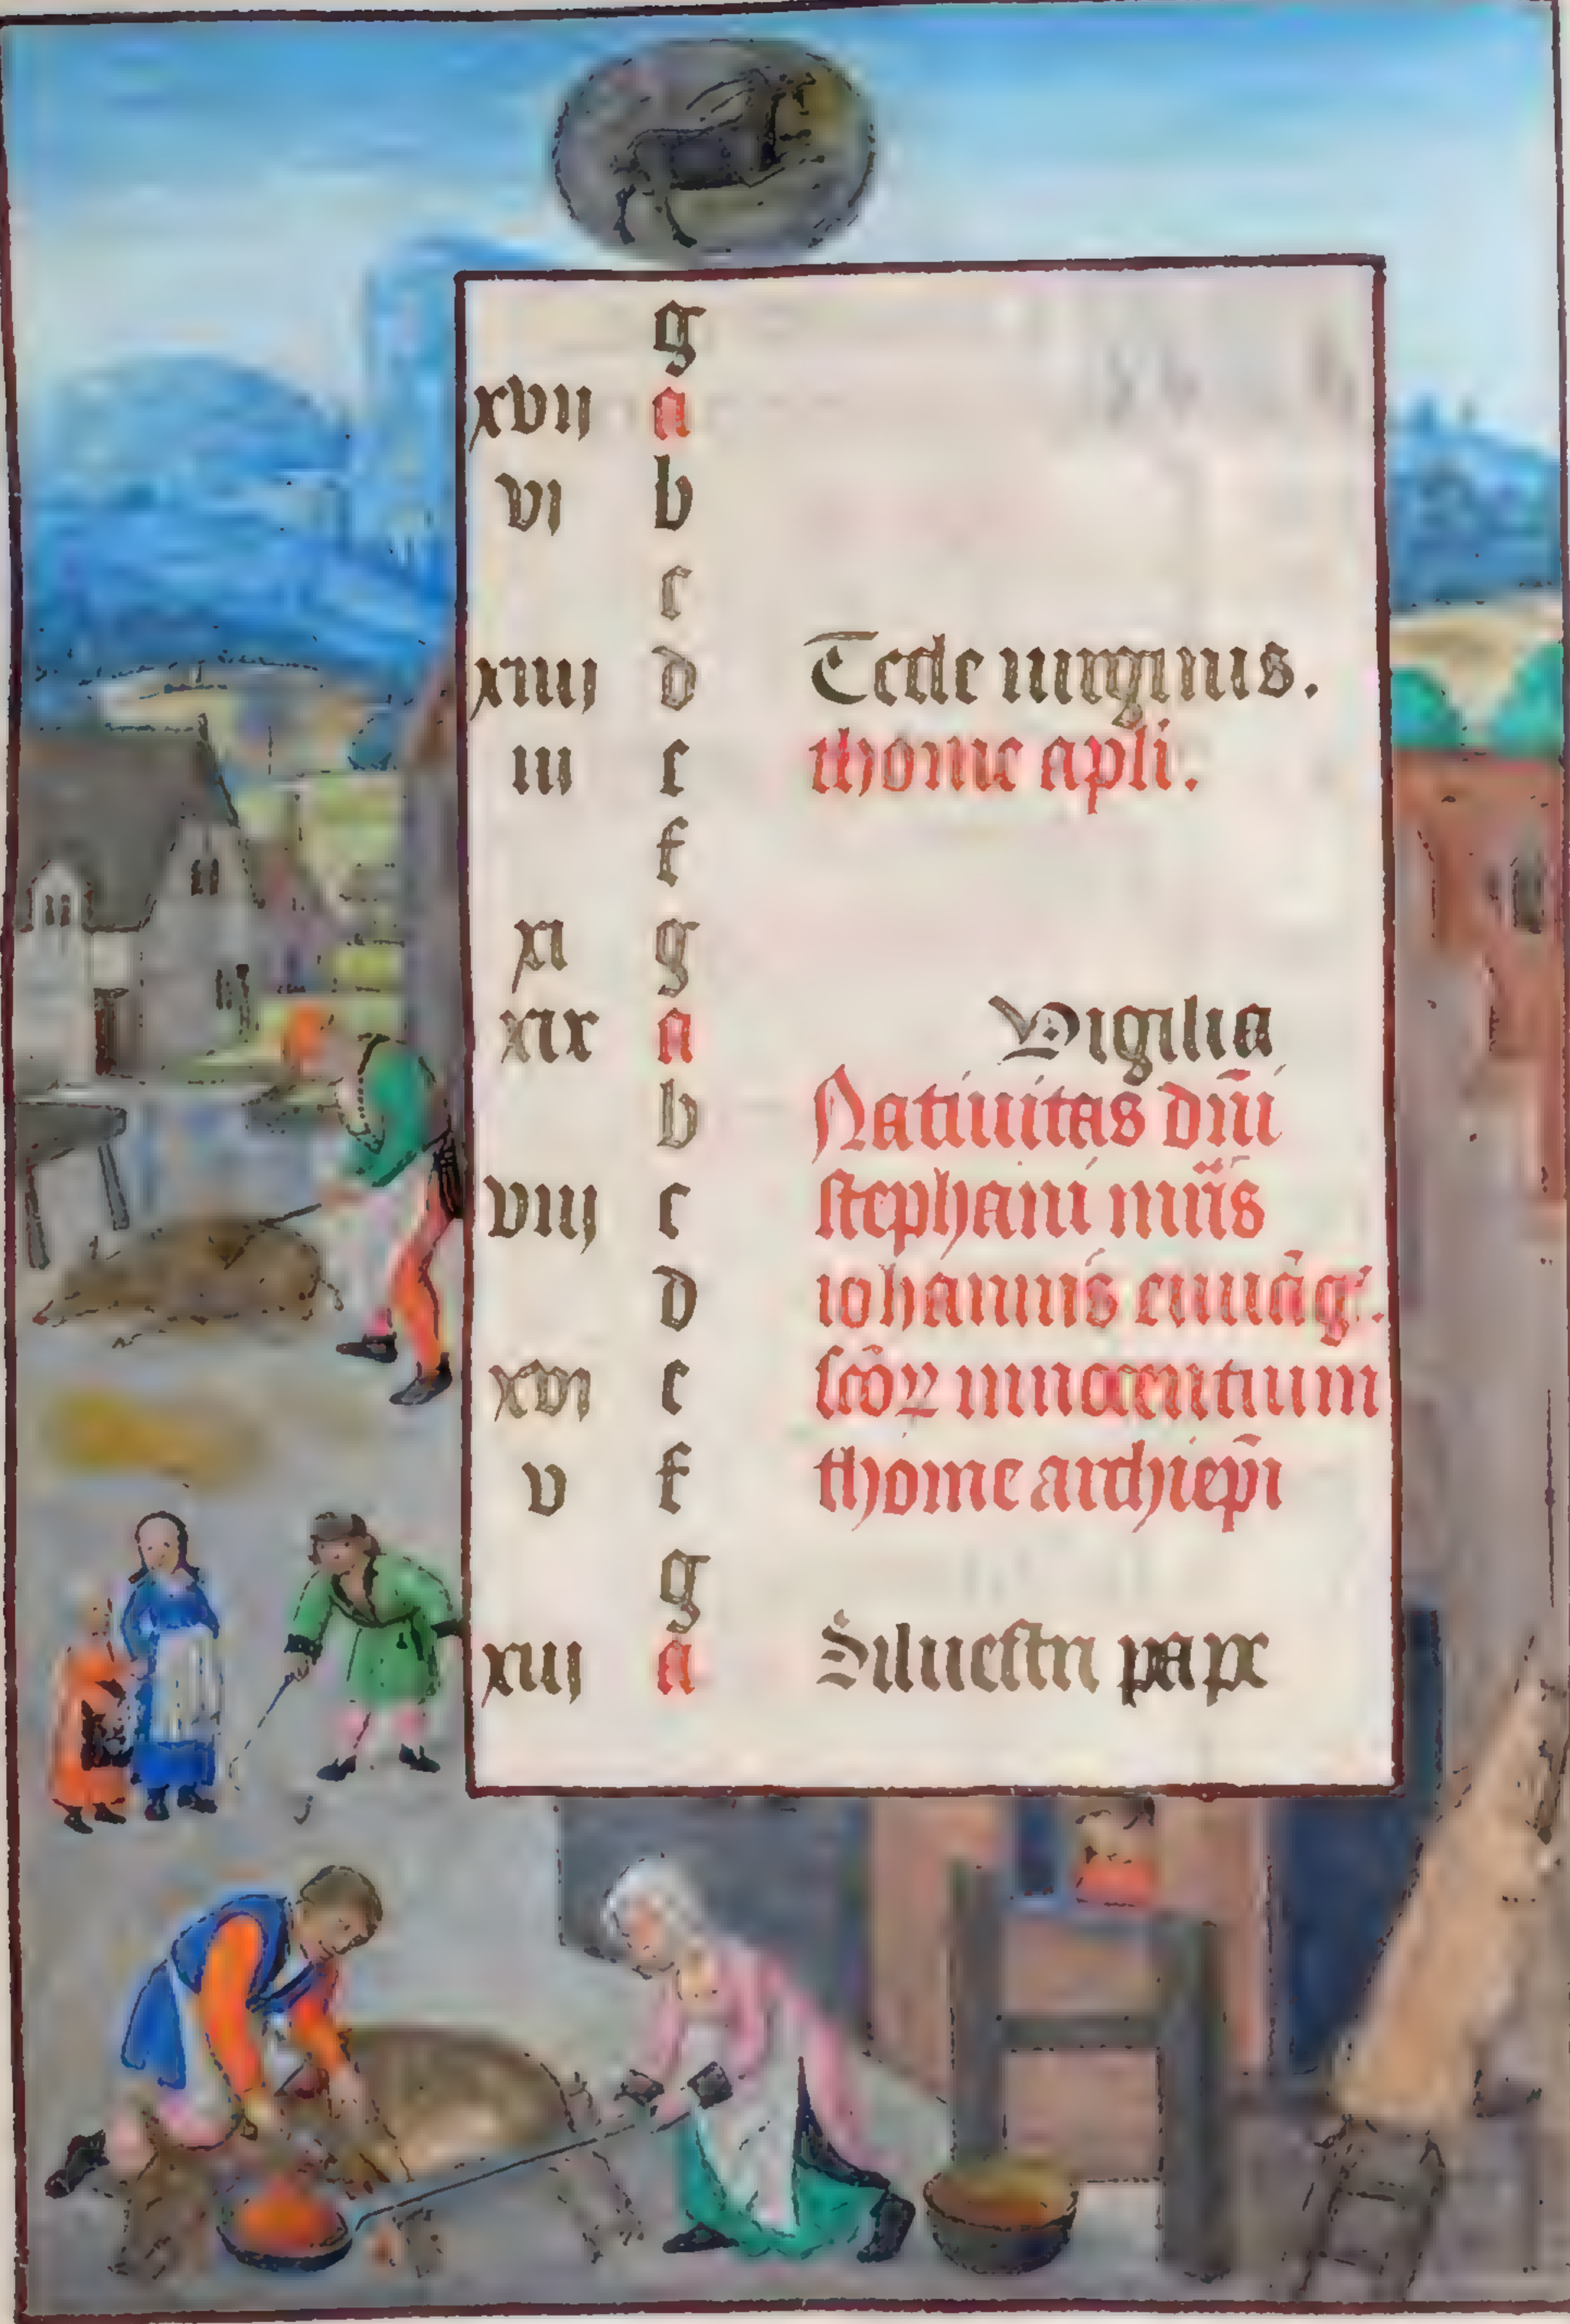 g
xvii a
vi b
c
xiiii d Tecle uirginis.
iii e thome apli.
f
xi g
xix a Vigilia
b Natiuitas dn̄i
viii c stephani mr̄is
d iohannis euuāg.
xvi e sc̄oꝝ innocentium
v f thome archiep̄i
g
xiii a Siluestri pape